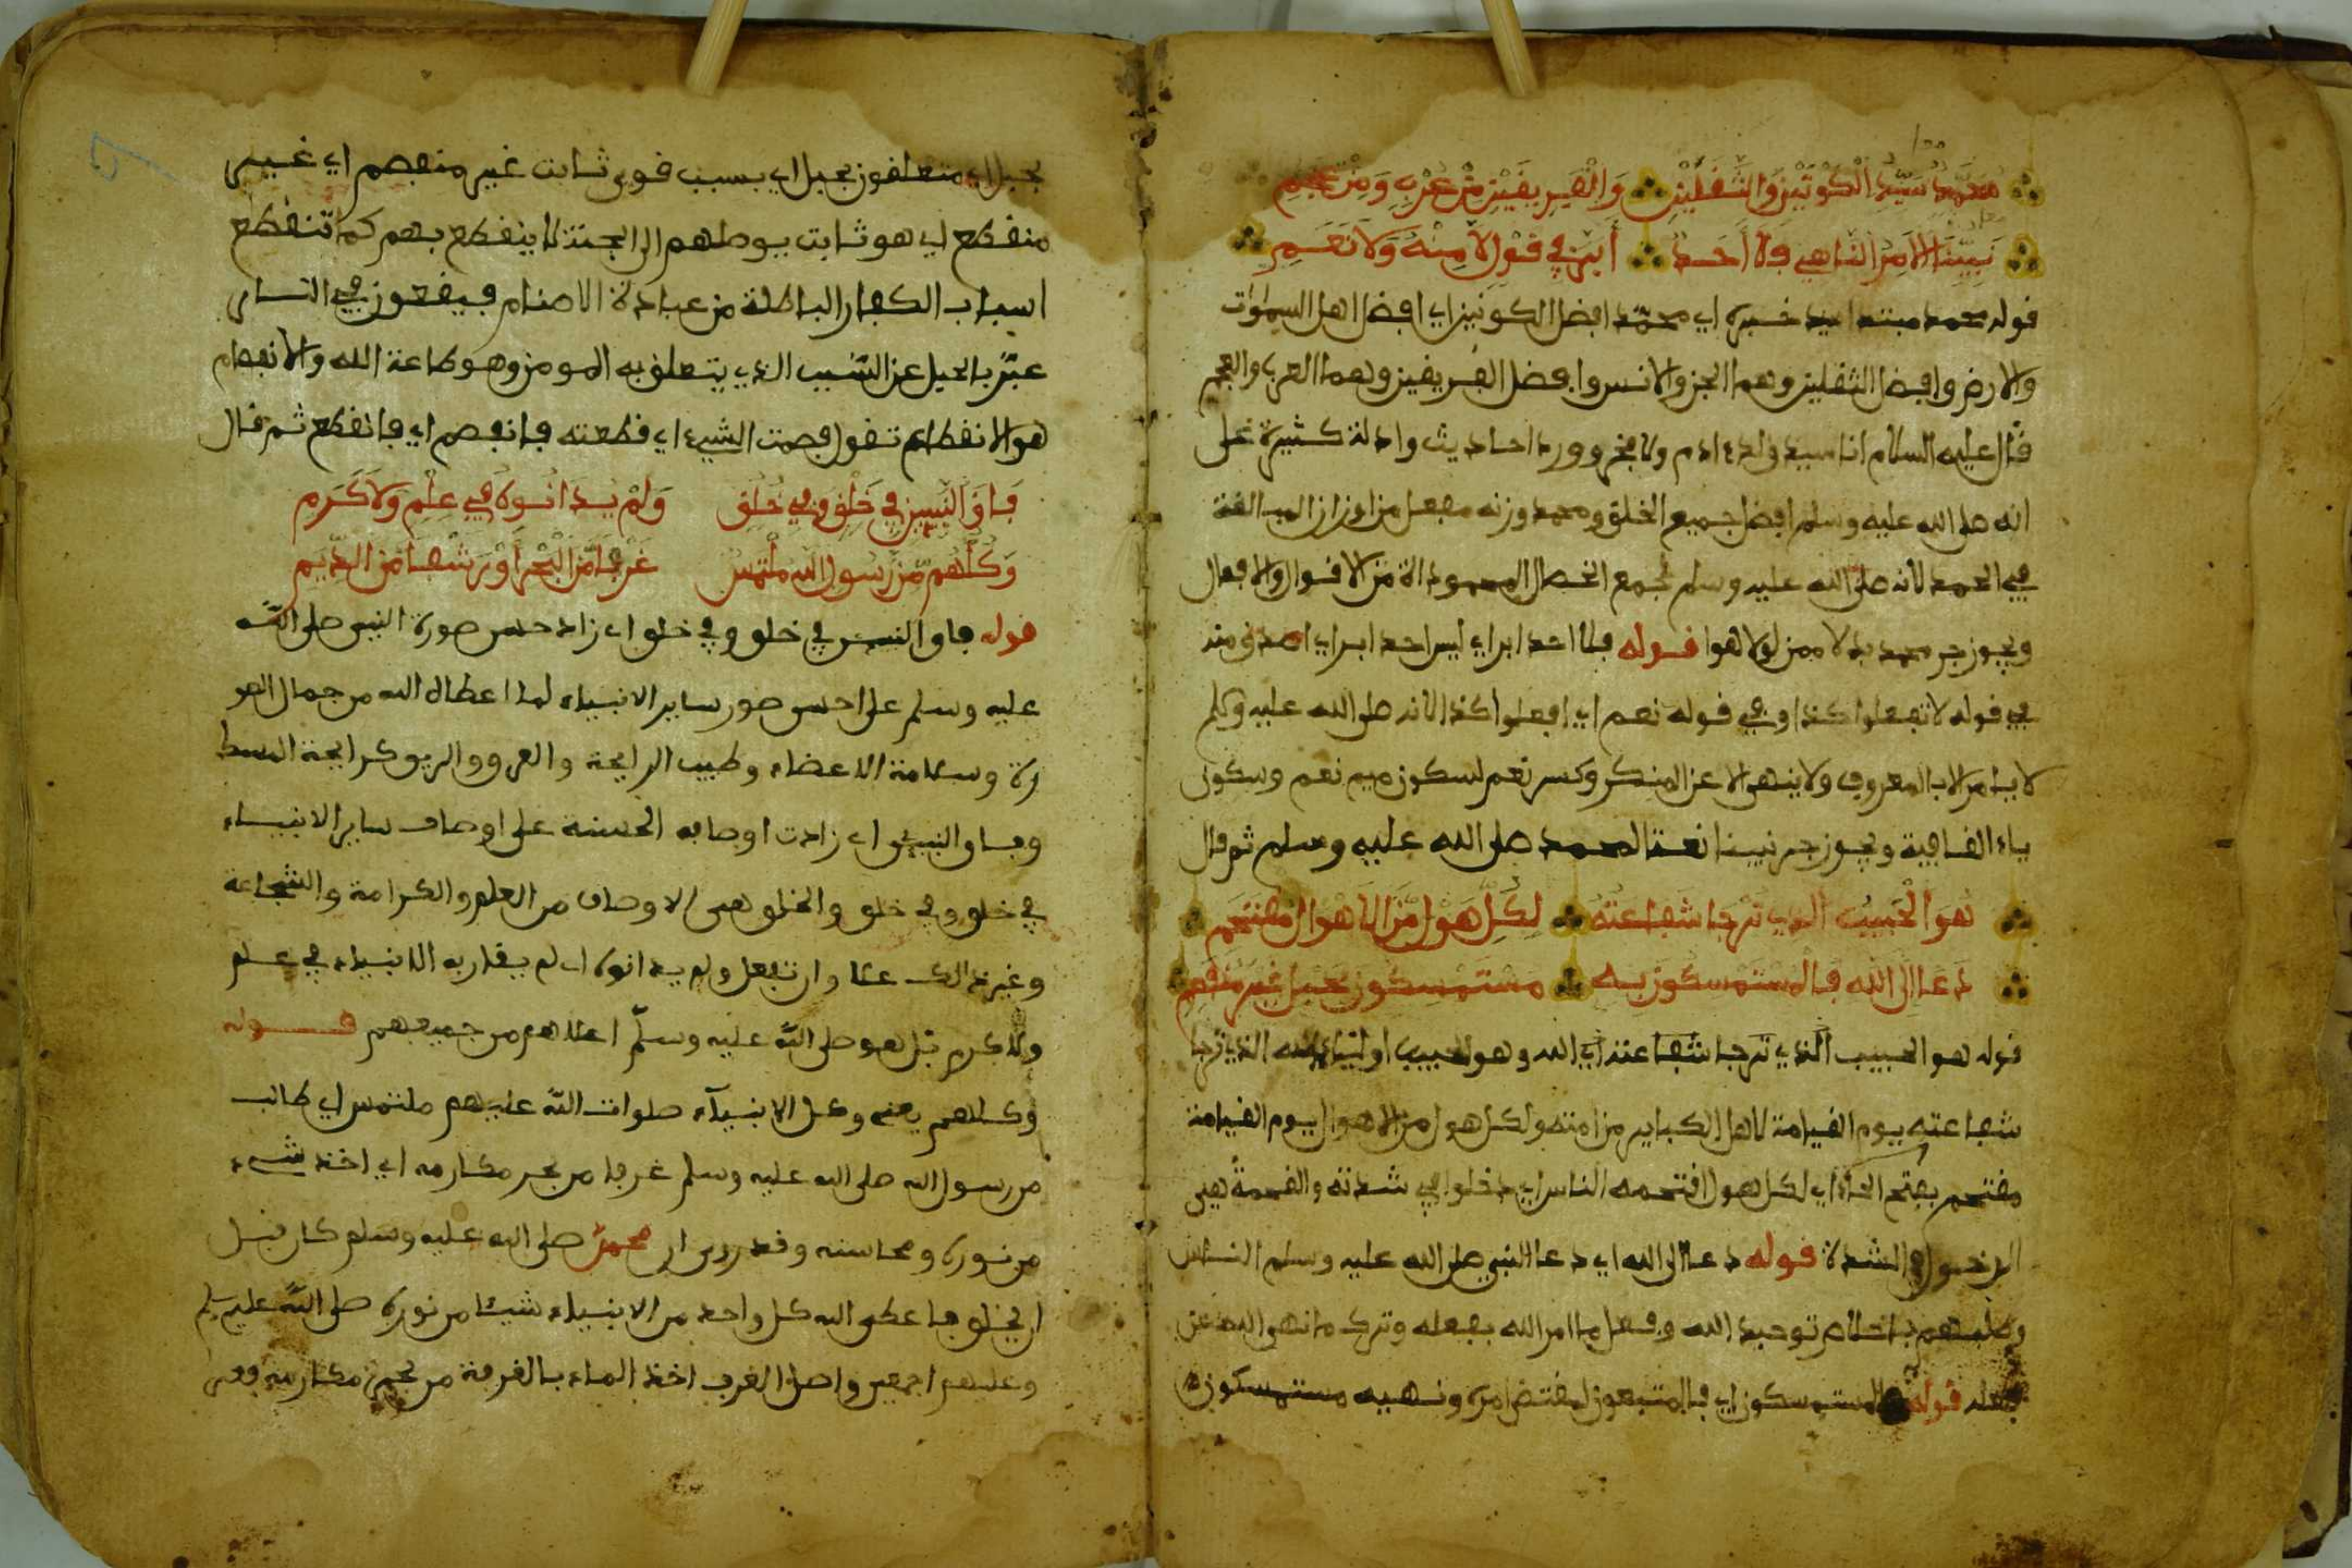 محمد سيد الكونين والثقلين والفريقين من عرب ومن عجم
نبينا الامر الناهي فلا أحد أبر في قول لا منه ولا نعم
قوله محمد مبتدا سيد خبره اي محمد افضل الكونين اي افضل اهل السموات
والارض وافضل الثقلين وهما الجن والانس وافضل الفريقين وهما العرب والعجم
قال عليه السلام انا سيد ولد ءادم ولا فخر وورد احاديث وادلة كثيرة على
انه صلى الله عليه وسلم افضل جميع الخلق ومحمد وزنه مفعل من اوزان المبالغة
في الحمد لانه صلى الله عليه وسلم تجمع الخصال المحمودة من الاقوال والافعال
ويجوز جر محمد بدلا ممن لولا هو قوله فلا احد ابر اي ليس احد ابر اي اصدق منه
في قوله لا تفعلوا كذا وفي قوله نعم اي افعلوا كذا لانه صلى الله عليه وسلم
لا يامر الا بالمعروف ولا ينهى الا عن المنكر وكسر نعم لسكون ميم نعم وسكون
ياء القافية ويجوز جر نبينا نعتا لمحمد صلى الله عليه وسلم ثم قال
هو الحبيب الذي ترجا شفاعته لكل هول من الاهوال مقتحم
دعا الى الله فالمستمسكون به مستمسكون بحبل غير منفصم
قوله هو الحبيب الذي ترجا شفاعته اي الله وهو حبيب اولياء الله الذي ترجا
شفاعته يوم القيامة لاهل الكباير من امته ولكل هول من الاهوال يوم القيامة
مقتحم بفتح الحاء اي لكل هول اقتحمه الناس اي دخلوا في شدته والقحمة هي
الدخول في الشدة قوله دعا الى الله اي دعا النبي صلى الله عليه وسلم الناس
وطلبهم باخلاص توحيد الله وفعل ما امر الله بفعله وترك ما نهى الله عن
فعله قوله فالمستمسكون اي فالمتبعون لمقتضى امره ونهيه مستمسكون
بحبل اي متعلقون بحبل اي بسبب قوي ثابت غير منفصم اي غير
منقطع اي هو ثابت يوصلهم الى الجنة لا ينقطع بهم كما تنقطع
اسباب الكفار الباطلة من عبادة الاصنام فيقعون في النار
عبر بالحبل عن السبب الذي يتعلق به المومن وهو طاعة الله والانفصام
هو الانقطاع تقول فصمت الشيء اي قطعته فانفصم اي فانقطع ثم قال
فاق النبيين في خلق وفي خلق ولم يدانوه في علم ولا كرم
وكلهم من رسول الله ملتمس غرفا من البحر أو رشفا من الديم
قوله فاق النبيين في خلق وفي خلق اي زاد حسن صورة النبي صلى الله
عليه وسلم على احسن صور ساير الانبياء لما اعطاه الله من جمال الصو
رة وسلامة الاعضاء وطيب الرايحة والعرق والريق كرايحة المسك
وفاق النبيين اي زادت اوصافه الحسنة على اوصاف ساير الانبياء
في خلق وفي خلق والخلق هي الاوصاف من العلم والكرامة والشجاعة
وغير ذالك علا وارتفع ولم يدانوه اي لم يقاربه الانبياء في علم
ولا كرم بل هو صلى الله عليه وسلم اعلاهم من جميعهم قوله
وكلهم يعني وكل الانبيآء صلوات الله عليهم ملتمس اي طالب
من رسول الله صلى الله عليه وسلم غرفا من بحر مكارمه اي اخذ شيء
من نوره ومحاسنه وقد روي ان محمد صلى الله عليه وسلم كان قبل
ان يخلق فاعطى الله كل واحد من الانبياء شيئا من نوره صلى الله عليه وسلم
وعليهم اجمعين واصل الغرف اخذ الماء بالغرفة من بحر مكارمه وفي